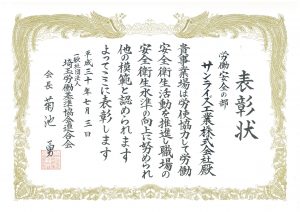 表彰状
労働安全の部
サンライズ工業株式会社殿
貴事業場は労使協力して労働
安全衛生活動を推進し職場の
安全衛生水準の向上に努められ
他の模範と認められます
よってここに表彰します
平成三十年七月三日
一般社団法人
埼玉労働基準協会連合会
会長 菊池 勇